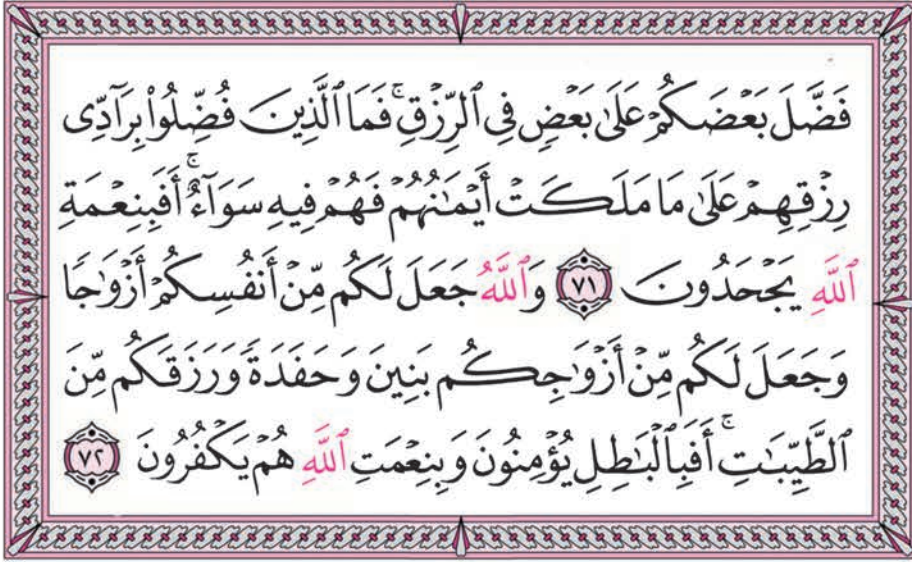 فَضَّلَ بَعْضَكُمْ عَلَىٰ بَعْضٍ فِى ٱلرِّزْقِ ۚ فَمَا ٱلَّذِينَ فُضِّلُوا۟ بِرَآدِّى
رِزْقِهِمْ عَلَىٰ مَا مَلَكَتْ أَيْمَٰنُهُمْ فَهُمْ فِيهِ سَوَآءٌ ۚ أَفَبِنِعْمَةِ
ٱللَّهِ يَجْحَدُونَ ٧١ وَٱللَّهُ جَعَلَ لَكُم مِّنْ أَنفُسِكُمْ أَزْوَٰجًا
وَجَعَلَ لَكُم مِّنْ أَزْوَٰجِكُم بَنِينَ وَحَفَدَةً وَرَزَقَكُم مِّنَ
ٱلطَّيِّبَٰتِ ۚ أَفَبِٱلْبَٰطِلِ يُؤْمِنُونَ وَبِنِعْمَتِ ٱللَّهِ هُمْ يَكْفُرُونَ ٧٢